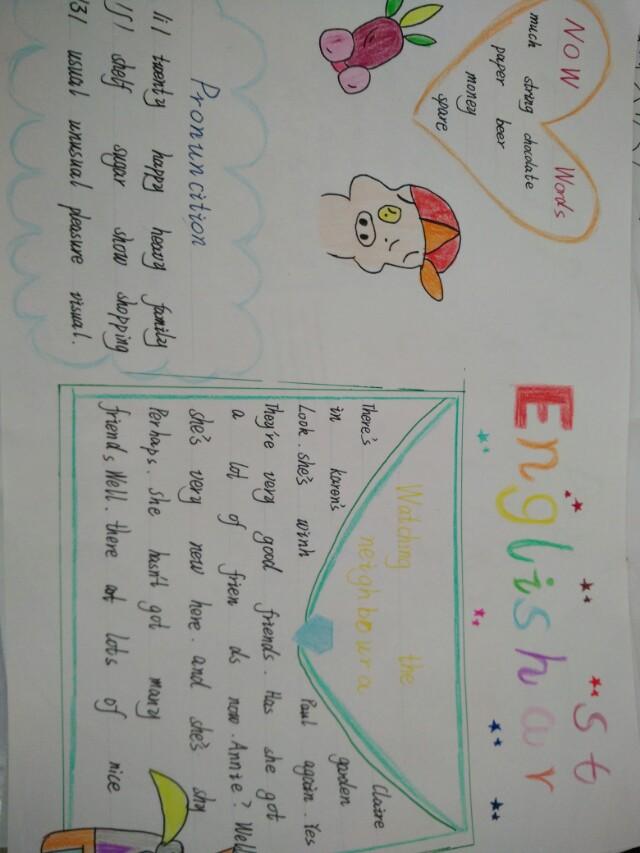 English st
ar
NOW Words
much string chocolate
paper beer
money
spare
Pronuncition
/i/ twenty happy heavy family
/ʃ/ shelf sugar show shopping
/ʒ/ usual unusual pleasure visual.
Watching the
neighboura
There's Claire
in karen's garden
Look. she's winh Paul again. Yes
They're very good friends. Has she got
a lot of frien ds now. Annie? Well
she's very now here. and she's shy
Perhaps. she hasn't got many
friends Well. there lots of nice